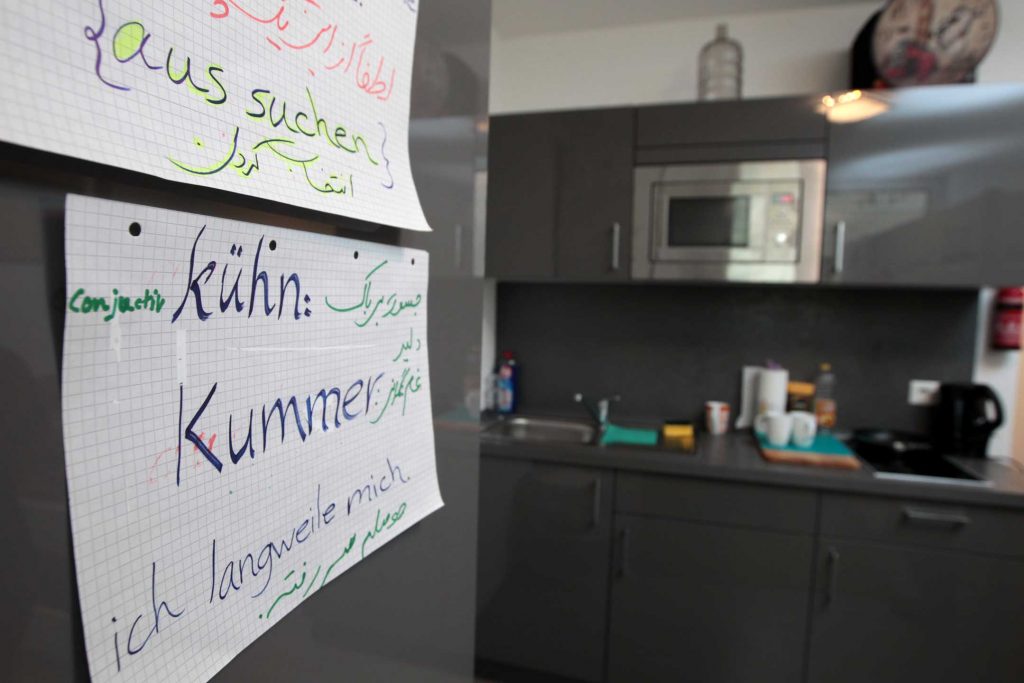 لطفاً از این یک
{aus suchen}
انتخاب کردن
conjuctiv kühn: جسور، بی باک
دلیر
Kummer: غم،
ich langweile mich.
حوصلم سر رفته.